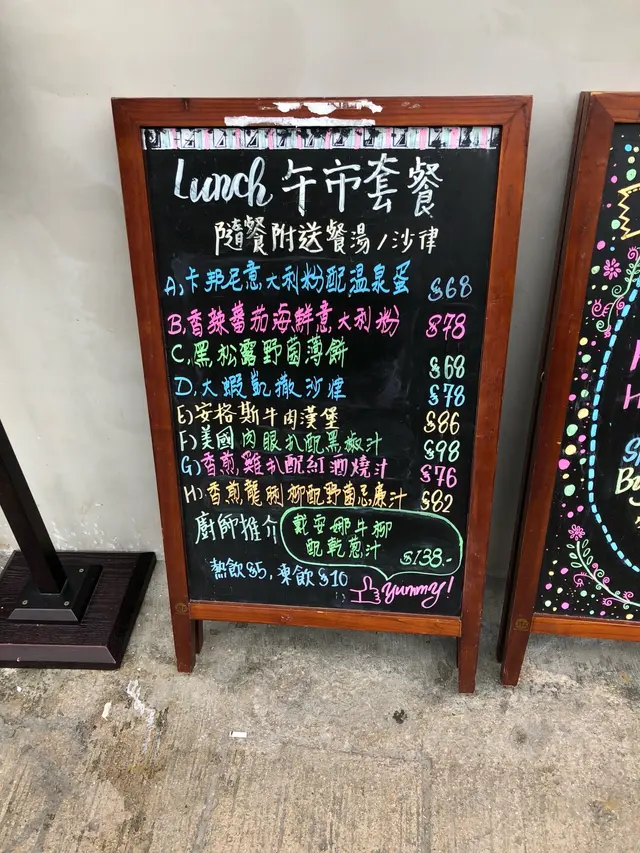 Lunch 午市套餐
隨餐附送餐湯/沙律
A, 卡邦尼意大利粉配溫泉蛋 $68
B, 香辣蕃茄海鮮意大利粉 $78
C, 黑松露野菌薄餅 $68
D, 大蝦凱撒沙律 $78
E) 安格斯牛肉漢堡 $86
F) 美國肉眼扒配黑椒汁 $98
G) 香煎雞扒配紅酒燒汁 $76
H) 香煎龍脷柳配野菌忌廉汁 $82
廚師推介
戴安娜牛柳
配乾葱汁 $138.-
熱飲$5, 凍飲$10
Yummy!